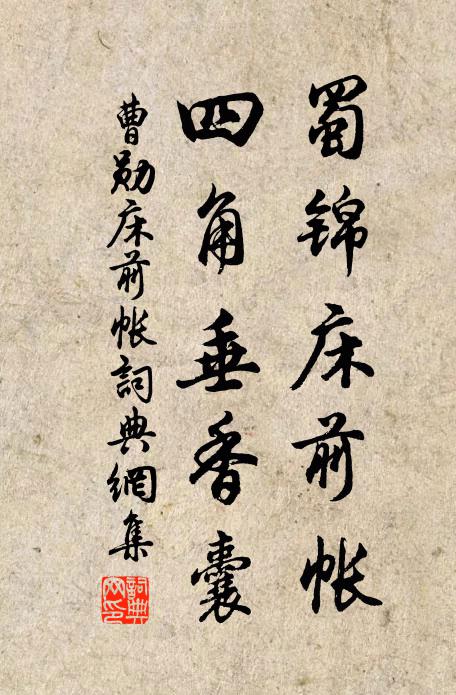 蜀锦床前帐
四角垂香囊
曹勋床前帐詞典網集
詞典网印